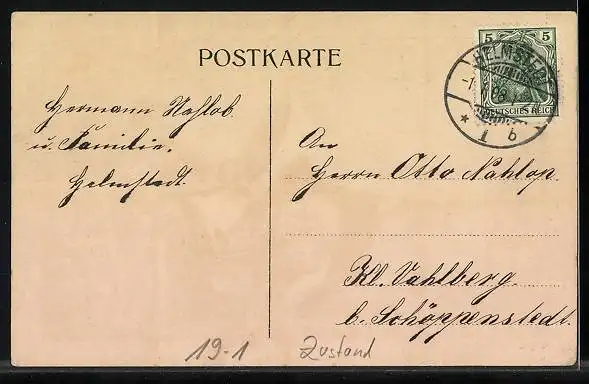 POSTKARTE
5 5
HELMSTEDT
DEUTSCHES REICH
* 1 b
Hermann Nahlob
u. Familie,
Helmstedt.
An
Herrn Otto Nahlop.
Kl. Vahlberg.
b. Schöppenstedt.
19-1 Zustand